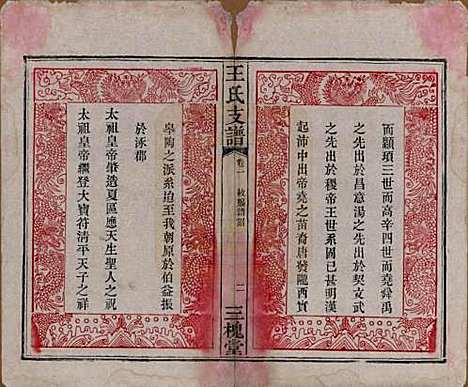 而顓頊三世而高辛四世而堯舜禹
之先出於昌意湯之先出於契文武
之先出於稷帝王世系固已甚明漢
起沛中出帝堯之苗裔唐發隴西實
王氏支譜
卷一
二
三槐堂
皋陶之派系迨至我朝原於伯益振
於涿郡
太祖皇帝肇造夏區應天生聖人之祝
太祖皇帝繼登大寶符清平天子之祥